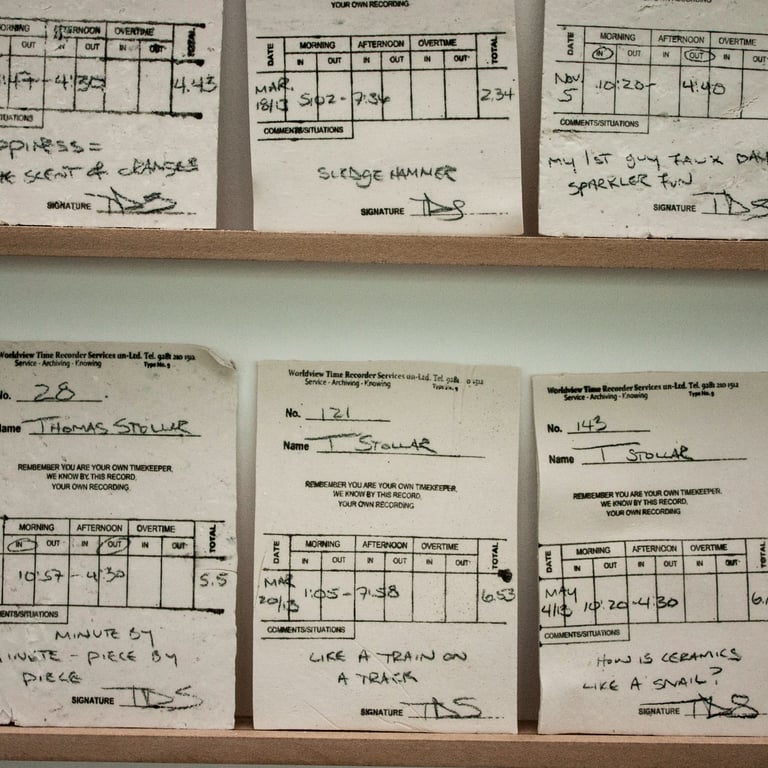 MORNING AFTERNOON OVERTIME TOTAL
OUT IN OUT IN OUT
4:30 4.43
HAPPINESS =
THE SCENT OF ORANGES
SIGNATURE TDS
YOUR OWN RECORDING
DATE MORNING AFTERNOON OVERTIME TOTAL
IN OUT IN OUT IN OUT
MAR. 18/13 5:02 - 7:36 2.34
COMMENTS/SITUATIONS
SLEDGE HAMMER
SIGNATURE TDS
DATE MORNING AFTERNOON OVERTIME
IN OUT IN OUT IN
NOV. 5 10:20 - 4:40
COMMENTS/SITUATIONS
MY 1ST GUY FAUX DAY
SPARKLER FUN
SIGNATURE TDS
Worldview Time Recorder Services un-Ltd. Tel. 9281 210 1512
Service - Archiving - Knowing Type No. 9
No. 28
Name THOMAS STOLLAR
REMEMBER YOU ARE YOUR OWN TIMEKEEPER,
WE KNOW BY THIS RECORD,
YOUR OWN RECORDING
MORNING AFTERNOON OVERTIME TOTAL
IN OUT IN OUT IN OUT
10:57 - 4:30 5.5
COMMENTS/SITUATIONS
MINUTE BY
MINUTE - PIECE BY
PIECE
SIGNATURE TDS
Worldview Time Recorder Services un-Ltd. Tel. 9281 210 1512
Service - Archiving - Knowing Type No. 9
No. 121
Name T STOLLAR
REMEMBER YOU ARE YOUR OWN TIMEKEEPER,
WE KNOW BY THIS RECORD,
YOUR OWN RECORDING
DATE MORNING AFTERNOON OVERTIME TOTAL
IN OUT IN OUT IN OUT
MAR 20/13 1:05 - 7:58 6.53
COMMENTS/SITUATIONS
LIKE A TRAIN ON
A TRACK
SIGNATURE TDS
Worldview Time Recorder Services un-Ltd. Tel. 9281 210 1512
Service - Archiving - Knowing Type No. 9
No. 143
Name T STOLLAR
REMEMBER YOU ARE YOUR OWN TIMEKEEPER,
WE KNOW BY THIS RECORD,
YOUR OWN RECORDING
DATE MORNING AFTERNOON OVERTIME TOTAL
IN OUT IN OUT IN OUT
MAY 4/13 10:20 - 4:30
COMMENTS/SITUATIONS
HOW IS CERAMICS
LIKE A SNAIL?
SIGNATURE TDS